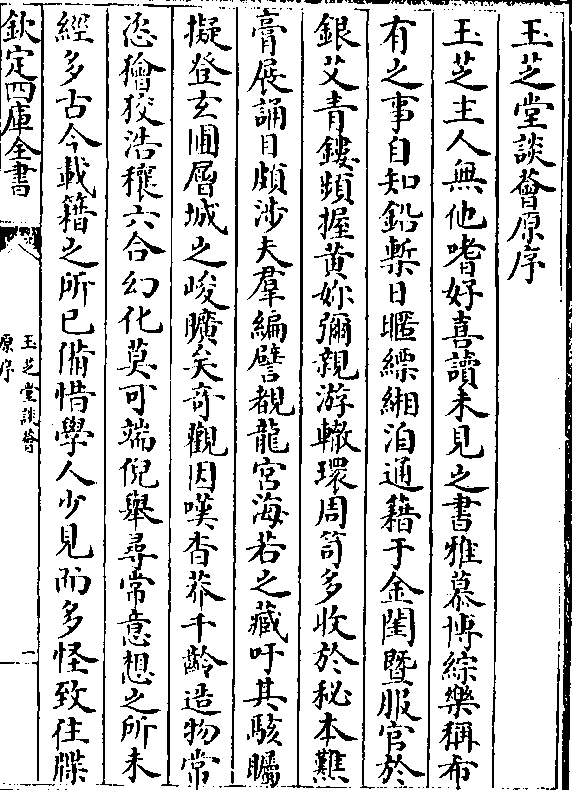 玉芝堂談薈原序
玉芝主人無他嗜好喜讀未見之書雅慕博綜樂稱布
有之事自知鉛槧日暱縹緗洎通籍于金閨暨服官於
銀艾青鏤頻握黄妳彌親游轍環周笥多收於秘本難
膏展誦目頗涉夫羣編譬覩龍宮海若之藏吁其駭矚
擬登玄圃層城之峻曠矣奇觀因嘆杳莽千齡造物常
恣獪狡浩穰六合幻化莫可端倪舉尋常意想之所未
經多古今載籍之所已備惜學人少見而多怪致往牒
欽定四庫全書
玉芝堂談薈
原序
一